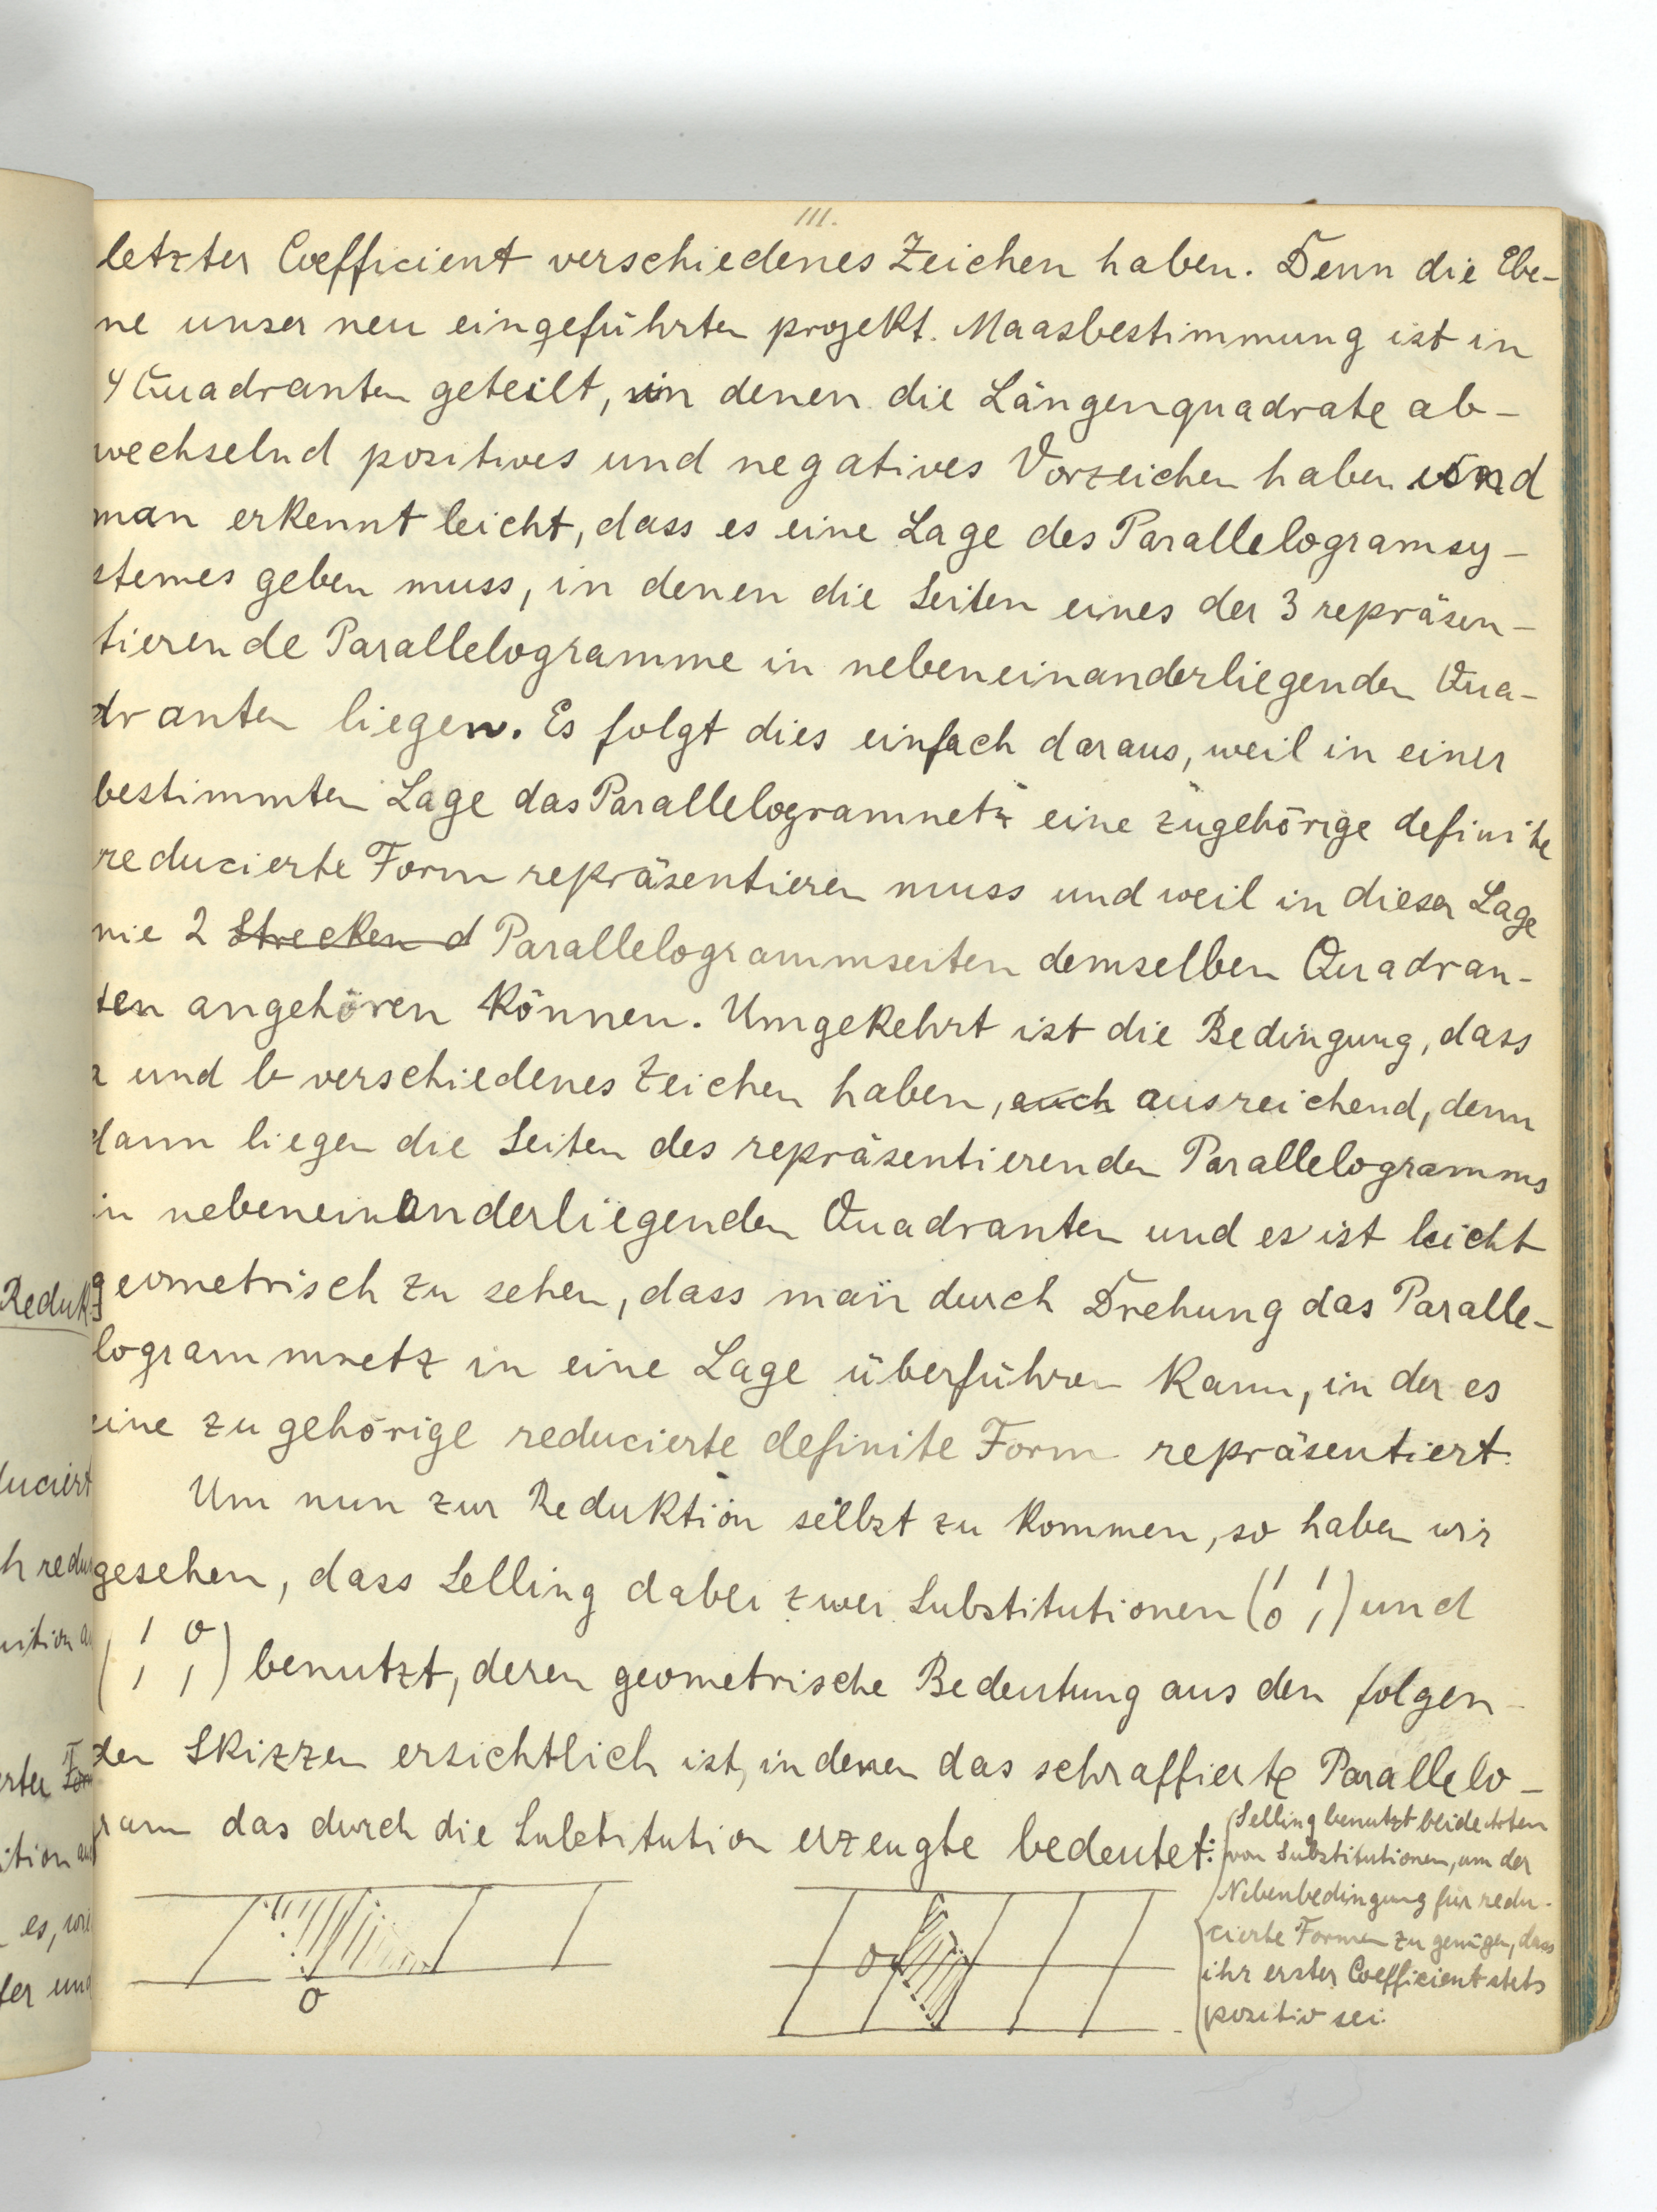 111.
letzter Coefficient verschiedenes Zeichen haben. Denn die Ebe-
ne unser neu eingeführten projekt. Maasbestimmung ist in
4 Quadranten geteilt, in denen die Längenquadrate ab-
wechselnd positives und negatives Vorzeichen haben und
man erkennt leicht, dass es eine Lage des Parallelogramsy-
stemes geben muss, in denen die Seiten eines der 3 repräsen-
tierende Parallelogramme in nebeneinanderliegenden Qua-
dranten liegen. Es folgt dies einfach daraus, weil in einer
bestimmten Lage das Parallelogramnetz eine zugehörige definite
reducierte Form repräsentieren muss und weil in dieser Lage
nie 2 Strecken d Parallelogrammseiten demselben Quadran-
ten angehören können. Umgekehrt ist die Bedingung, dass
a und b verschiedenes Zeichen haben, auch ausreichend, denn
dann liegen die Seiten des repräsentierenden Parallelogramms
in nebeneinanderliegenden Quadranten und es ist leicht
geometrisch zu sehen, dass man durch Drehung das Paralle-
logrammnetz in eine Lage überführen kann, in der es
eine zugehörige reducierte definite Form repräsentiert.
Um nun zur Reduktion selbst zu kommen, so haben wir
gesehen, dass Selling dabei zwei Substitutionen (1 1
0 1) und
(1 0
1 1) benutzt, deren geometrische Bedeutung aus den folgen-
den Skizzen ersichtlich ist, in denen das schraffierte Parallelo-
gram das durch die Substitution erzeugte bedeutet:
Selling benutzt beide Arten
von Substitutionen, um der
Nebenbedingung für redu-
cierte Formen zu genügen, dass
ihr erster Coefficient stets
positiv sei.
O
O
Reduk
duciert
h redu
es, wie
fer und